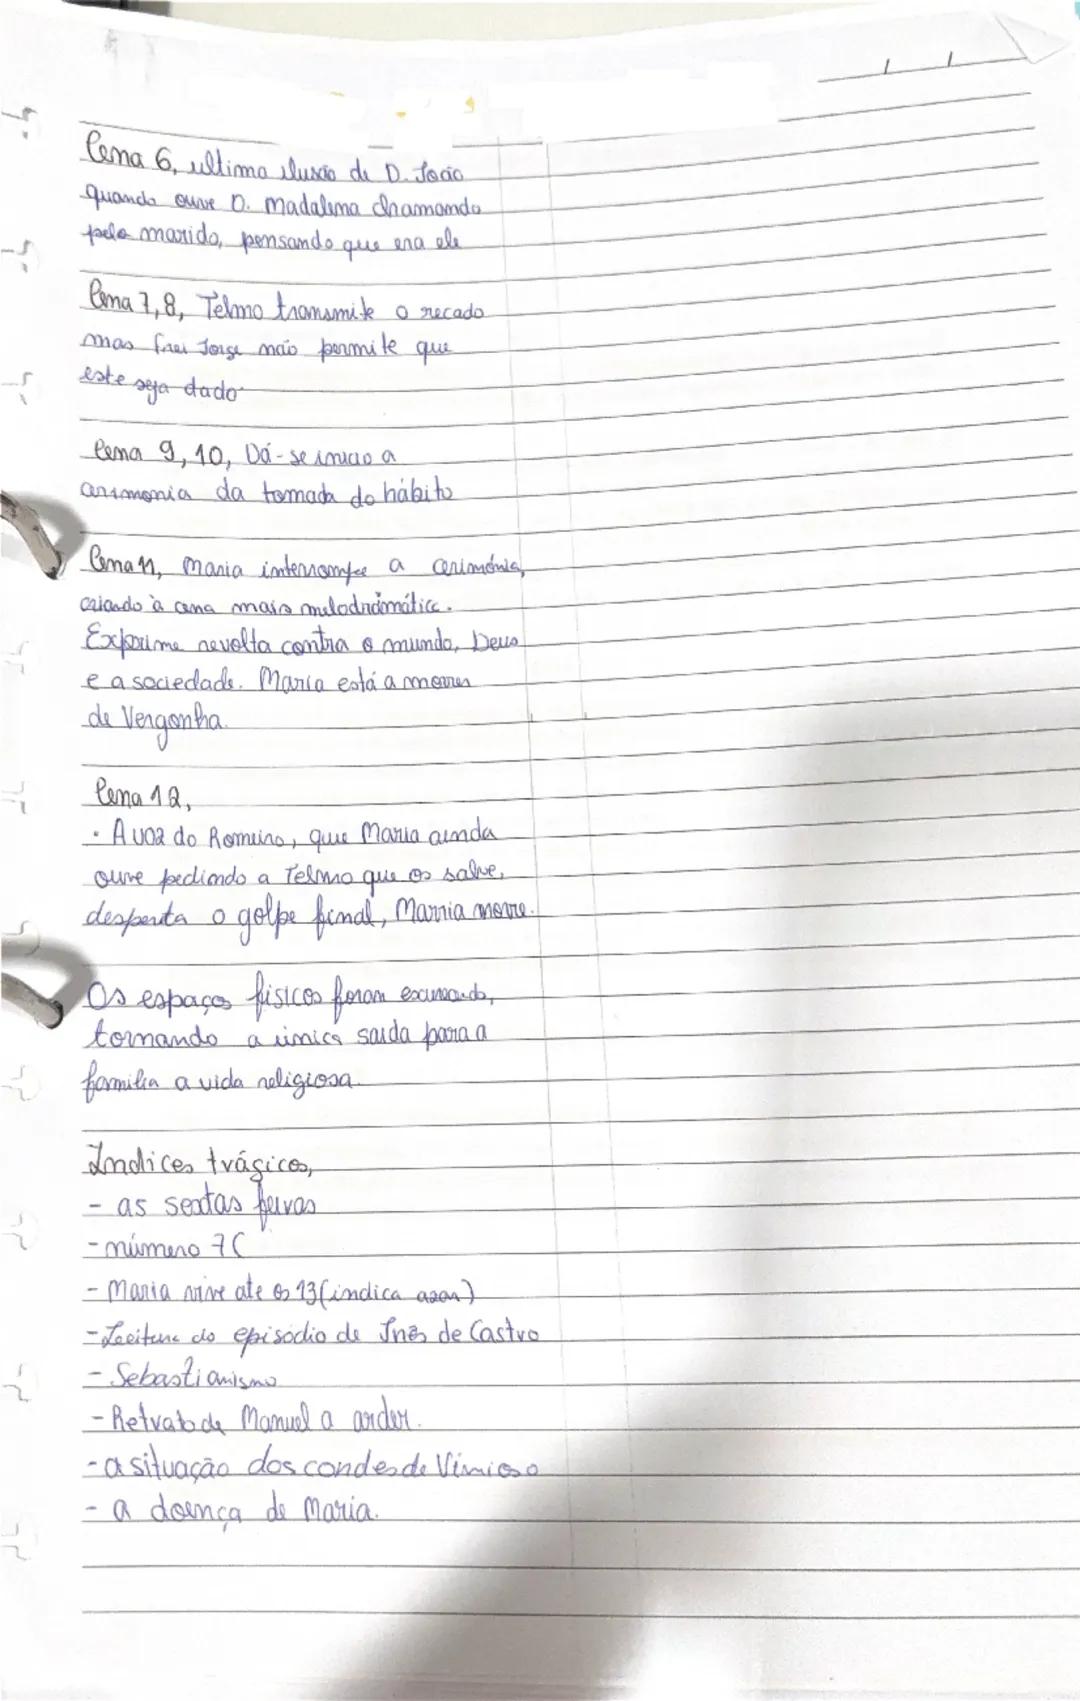 Cena 6, ultima ilusão de D. João
quando ouve D. Madalena chamando
pelo marido, pensando que era ele
Cena 7,8, Telmo transmite o recado
mas frei Jorge não permite que
este seja dado
Cena 9, 10, Dá-se inicio a
cerimonia da tomada do hábito
Cena 11, Maria interrompe a cerimónia,
criando à cena mais melodramática.
Exprime revolta contra o mundo, Deus
e a sociedade. Maria está a morrer
de Vergonha.
Cena 12,
• A voz do Romeiro, que Maria ainda
ouve pedindo a Telmo que os salve,
desperta o golpe final, Marria morre.
Os espaços fisicos foram
tornando a única saída para a
familia a vida religiosa.
Indices trágicos,
- as sextas feiras
- número 7
- Maria vive ate os 13 (indica azar)
- Leeitura do episodio de Inês de Castro
- Sebastianismo
- Retrato de Manuel a arder.
- a situação dos condes de Vimioso
- a doença de Maria.